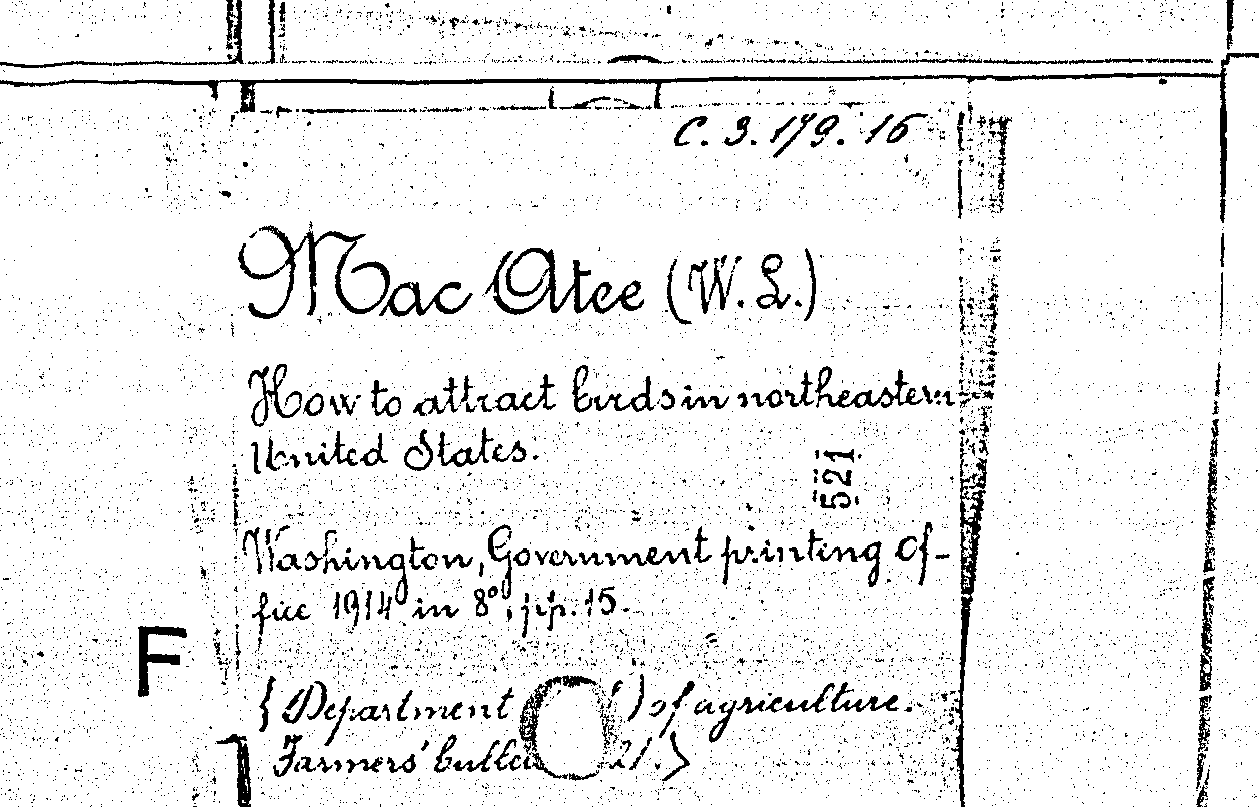 C. 3. 179. 16
Mac Atee (W. L.)
How to attract birds in northeastern
United States.
521
Washington, Government printing Of-
fice 1914 in 8°, pp. 15.
F
{Department ) of agriculture.
Farmers' 21.}